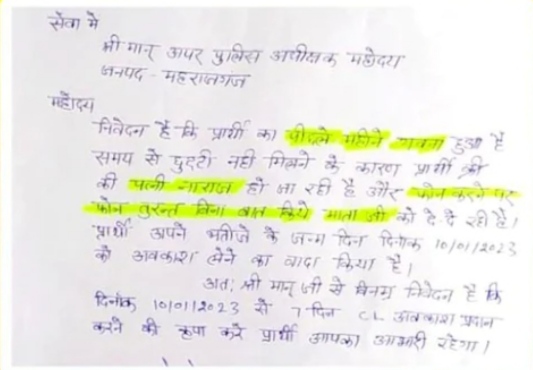 सेवा में
श्री मान् अपर पुलिस अधीक्षक महोदय
जनपद - महराजगंज
महोदय
निवेदन है कि प्रार्थी का पीछले महिने गवना हुआ है
समय से छुट्टी नहीं मिलने के कारण प्रार्थी की
की पत्नी नाराज हो जा रही है और फोन करने पर
फोन तुरन्त बिना बात किये माता जी को दे दे रही है।
प्रार्थी अपने भतीजे के जन्म दिन दिनांक 10/01/2023
को अवकाश लेने का वादा किया है।
अतः श्री मान् जी से विनम्र निवेदन है कि
दिनांक 10/01/2023 से 7 दिन CL अवकाश प्रदान
करने की कृपा करे प्रार्थी आपका आभारी रहेगा।